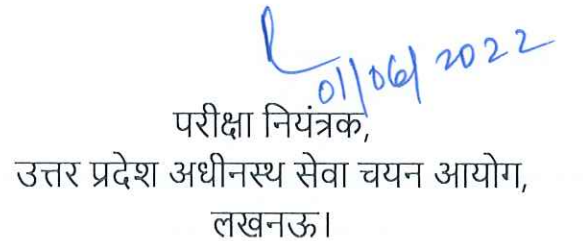 01/06/2022
परीक्षा नियंत्रक,
उत्तर प्रदेश अधीनस्थ सेवा चयन आयोग,
लखनऊ।